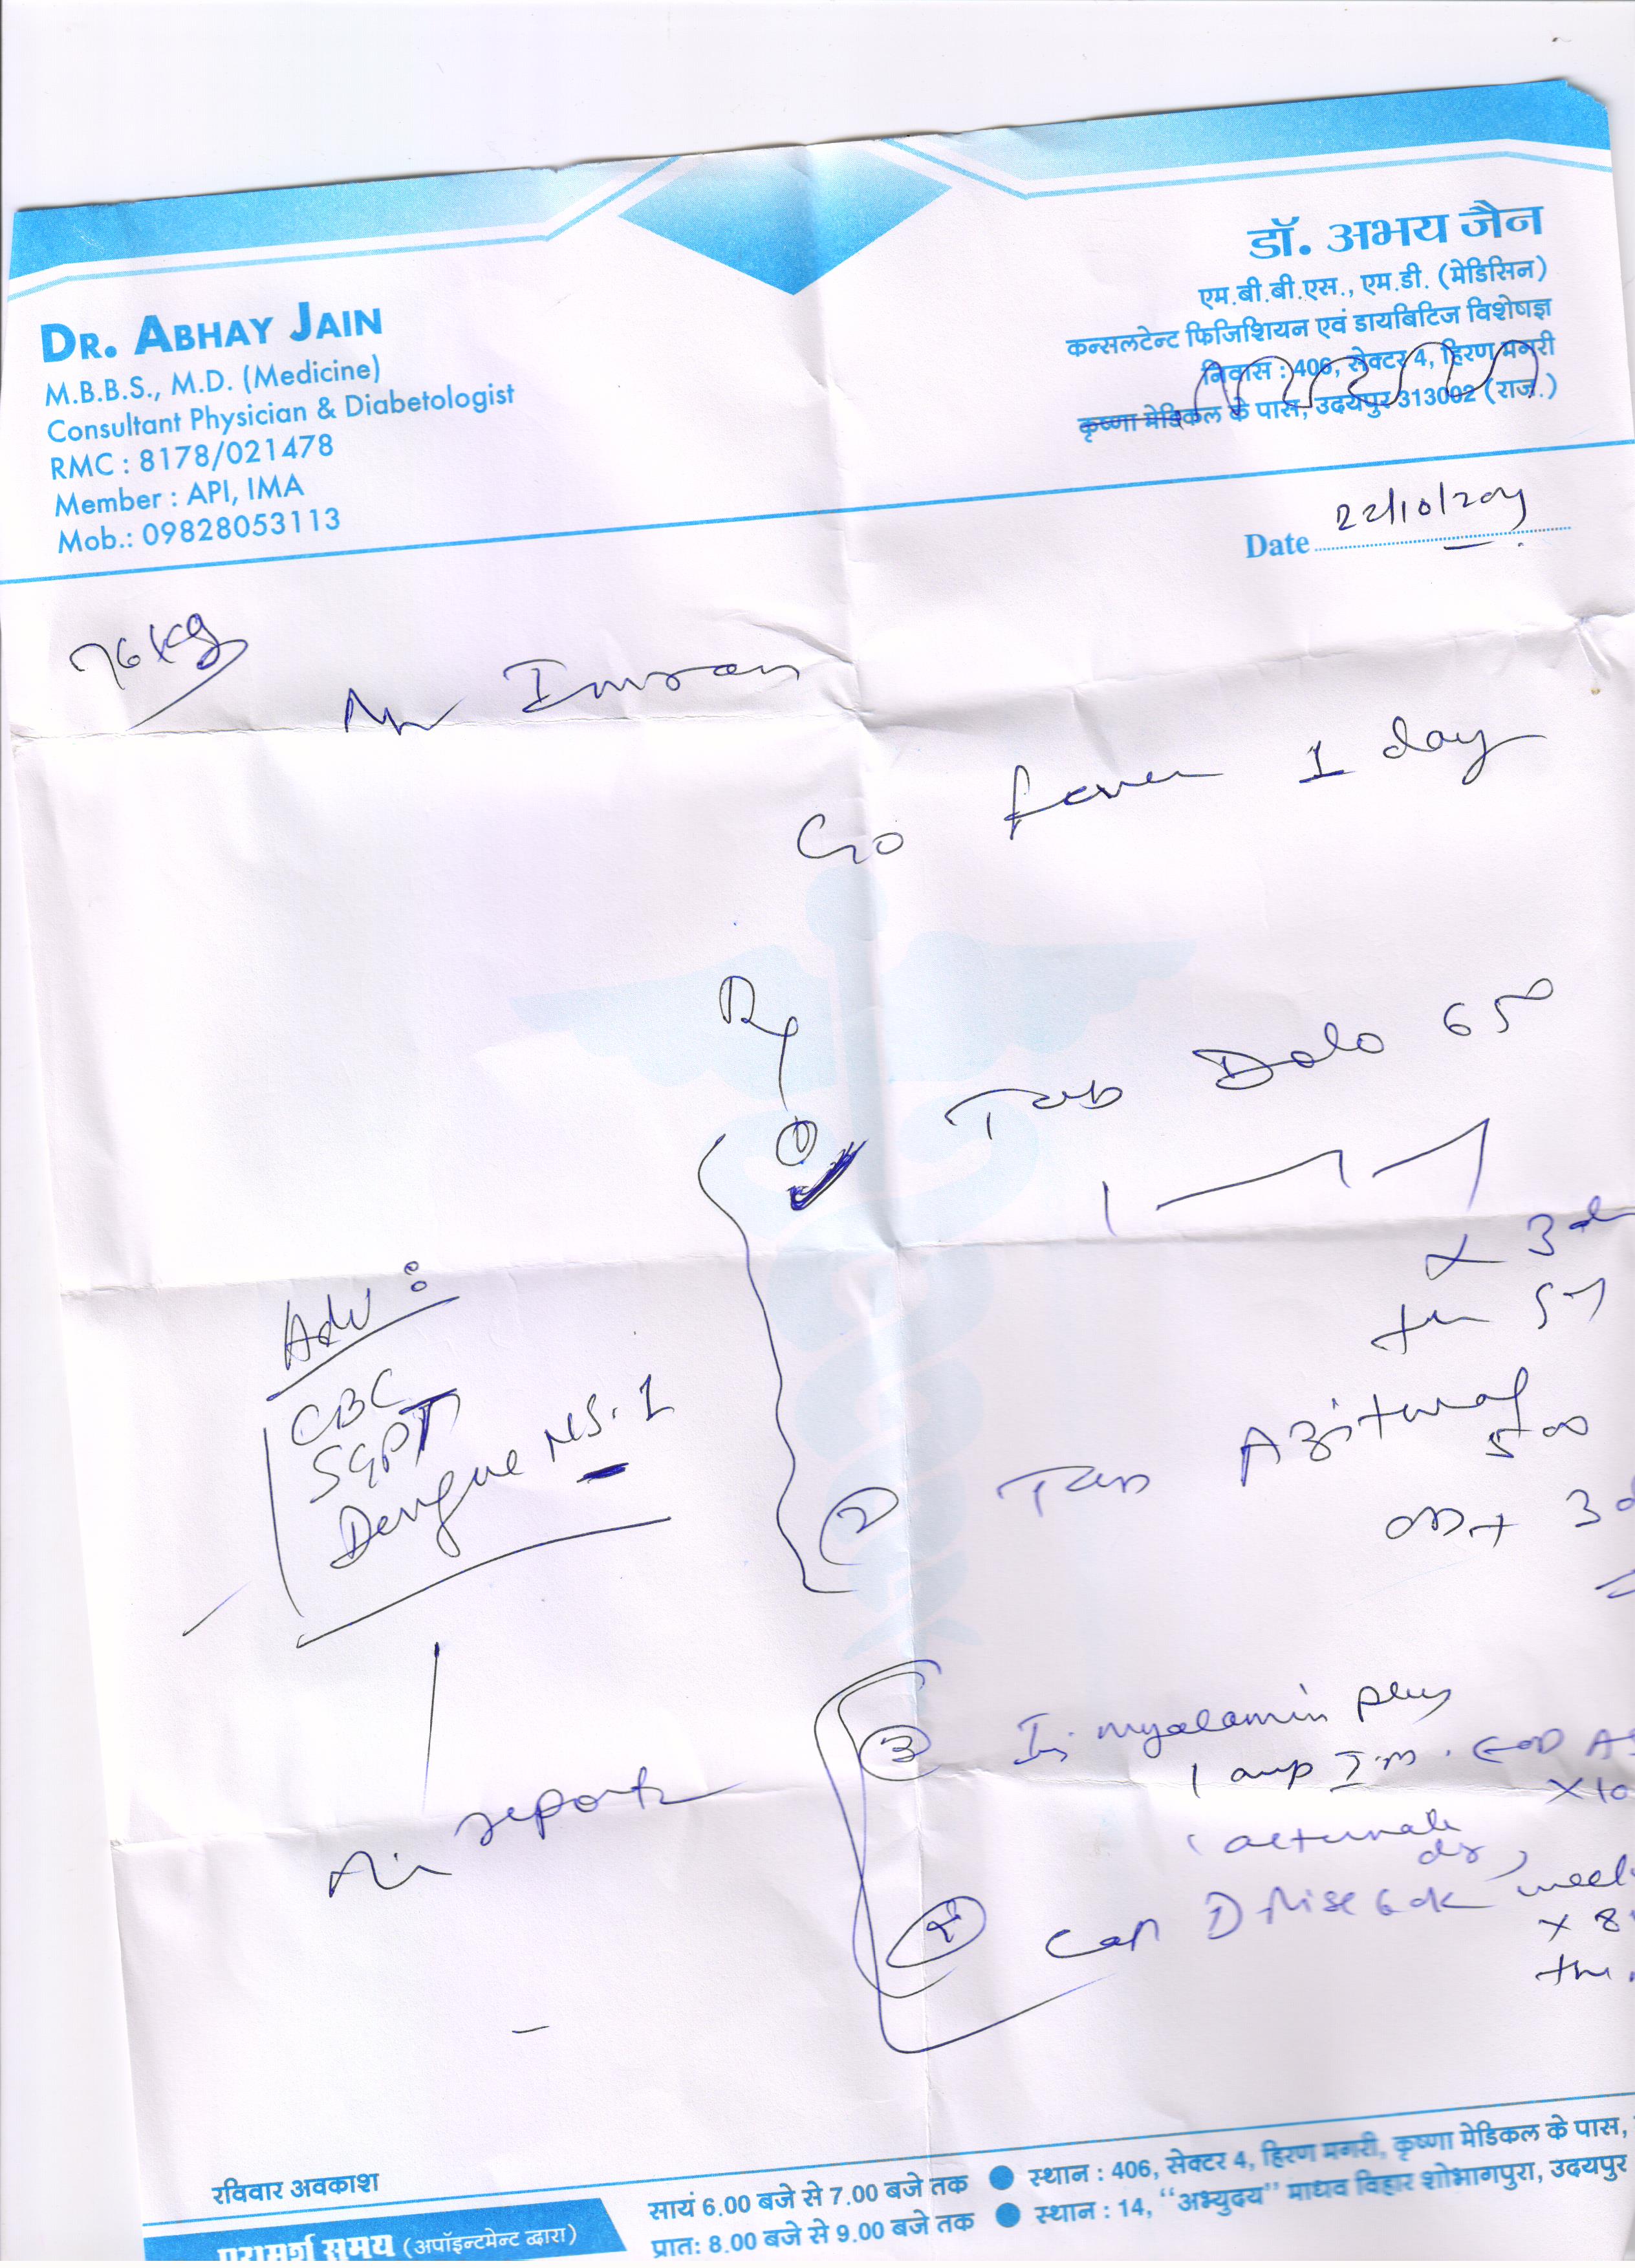 DR. ABHAY JAIN
M.B.B.S., M.D. (Medicine)
Consultant Physician & Diabetologist
RMC : 8178/021478
Member : API, IMA
Mob.: 09828053113
डॉ. अभय जैन
एम.बी.बी.एस., एम.डी. (मेडिसिन)
कन्सलटेन्ट फिजिशियन एवं डायबिटिज विशेषज्ञ
निवास : 406, सेक्टर 4, हिरण मगरी
कृष्णा मेडिकल के पास, उदयपुर 313002 (राज.)
Date 22/10/20
76 kg
Mr Imran
C/o fever 1 day
Rx
① Tab Dolo 650
x 3 d
Adv :
CBC
SGPT
Dengue NS-1
② Tab
500
OD x 3 d
③ Inj myelamin plus
1 amp I.m. EOD
x 10
(alternate
reports
④ Cap D Rise 60k week
x 8
रविवार अवकाश
परामर्श समय (अपॉइन्टमेन्ट द्वारा)
सायं 6.00 बजे से 7.00 बजे तक ● स्थान : 406, सेक्टर 4, हिरण मगरी, कृष्णा मेडिकल के पास,
प्रातः 8.00 बजे से 9.00 बजे तक ● स्थान : 14, ‘‘अभ्युदय’’ माधव विहार शोभागपुरा, उदयपुर